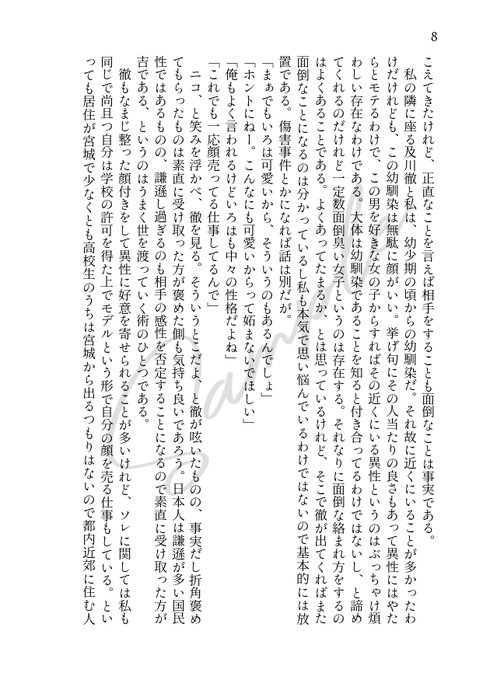 8
こえてきたけれど、正直なことを言えば相手をすることも面倒なことは事実である。
私の隣に座る及川徹と私は、幼少期の頃からの幼馴染だ。それ故に近くにいることが多かったわ
けだけれども、この幼馴染は無駄に顔がいい。挙げ句にその人当たりの良さもあって異性にはやた
らとモテるわけで、この男を好きな女の子からすればその近くにいる異性というのはぶっちゃけ煩
わしい存在なわけである。大体は幼馴染であることを知ると付き合ってるわけではないし、と諦め
てくれるのだけれど一定数面倒臭い女子というのは存在する。それなりに面倒な絡まれ方をするの
はよくあることである。よくあってたまるか、とは思っているけれど、そこで徹が出てくればまた
面倒なことになるのは分かっているし私も本気で思い悩んでいるわけではないので基本的には放
置である。傷害事件とかになれば話は別だが。
「まぁでもいろは可愛いから、そういうのもあるんでしょ」
「ホントにねー。こんなにも可愛いからって妬まないでほしい」
「俺もよく言われるけどいろはも中々の性格だよね」
「これでも一応顔売ってる仕事してるんで」
ニコ、と笑みを浮かべ、徹を見る。そういうとこだよ、と徹が呟いたものの、事実だし折角褒め
てもらったものは素直に受け取った方が褒めた側も気持ち良いであろう。日本人は謙遜が多い国民
性ではあるものの、謙遜し過ぎるのも相手の感性を否定することになるので素直に受け取った方が
吉である、というのはうまく世を渡っていく術のひとつである。
徹もなまじ整った顔付きをして異性に好意を寄せられることが多いけれど、ソレに関しては私も
同じで尚且つ自分は学校の許可を得た上でモデルという形で自分の顔を売る仕事もしている。とい
っても居住が宮城で少なくとも高校生のうちは宮城から出るつもりはないので都内近郊に住む人
Sample